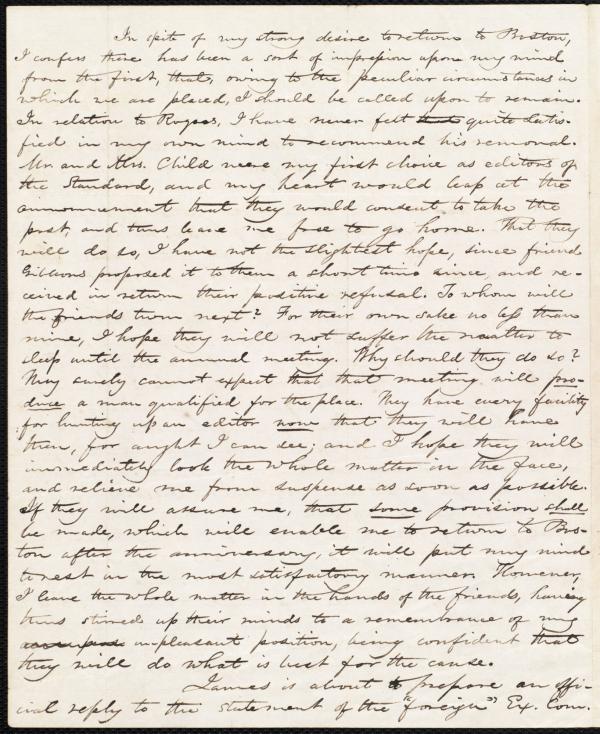 In spite of my strong desire to return to Boston,
I confess there has been a sort of impression upon my mind
from the first, that, owing to the peculiar circumstances in
which we are placed, I should be called upon to remain.
In relation to Rogers, I have never felt quite satis-
fied in my own mind to recommend his removal.
Mr. and Mrs. Child were my first choice as editors of
the Standard, and my heart would leap at the
announcement that they would consent to take the
post, and thus leave me free to go home. That they
will do so, I have not the slightest hope, since friend
Gibbons proposed it to them a short time since, and re-
ceived in return their positive refusal. To whom will
the friends turn next? For their own sake no less than
mine, I hope they will not suffer the matter to
sleep until the annual meeting. Why should they do so?
They surely cannot expect that that meeting will pro-
duce a man qualified for the place. They have every facility
for hunting up an editor now that they will have
then, for aught I can see; and I hope they will
immediately look the whole matter in the face,
and relieve me from suspense as soon as possible.
If they will assure me, that some provision shall
be made, which will enable me to return to Bos-
ton after the anniversary, it will put my mind
to rest in the most satisfactory manner. However,
I leave the whole matter in the hands of the friends, having
thus stirred up their minds to a remembrance of my
unpleasant position, being confident that
they will do what is best for the cause.
James is about to prepare an offi-
cial reply to the statement of the "foreign" Ex. Com.